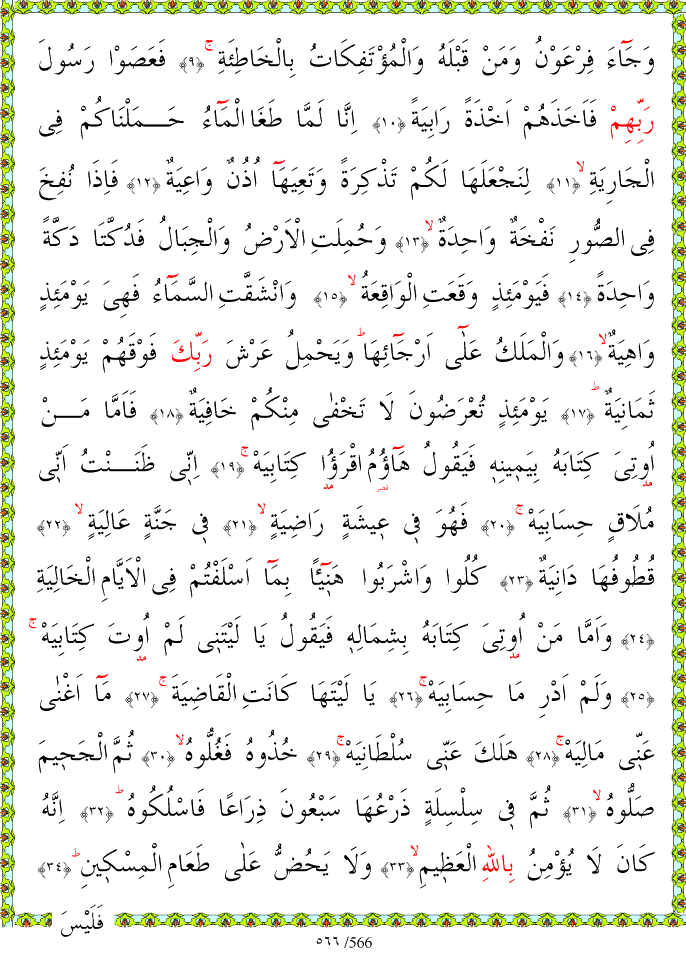 وَجَٓاءَ فِرْعَوْنُ وَمَنْ قَبْلَهُ وَالْمُؤْتَفِكَاتُ بِالْخَاطِئَةِۚ ﴿٩﴾ فَعَصَوْا رَسُولَ
رَبِّهِمْ فَاَخَذَهُمْ اَخْذَةً رَابِيَةً ﴿١٠﴾ اِنَّا لَمَّا طَغَا الْمَٓاءُ حَـــمَلْنَاكُمْ فِى
الْجَارِيَةِۙ ﴿١١﴾ لِنَجْعَلَهَا لَكُمْ تَذْكِرَةً وَتَعِيَهَٓا اُذُنٌ وَاعِيَةٌ ﴿١٢﴾ فَاِذَا نُفِخَ
فِى الصُّورِ نَفْخَةٌ وَاحِدَةٌۙ ﴿١٣﴾ وَحُمِلَتِ الْاَرْضُ وَالْجِبَالُ فَدُكَّتَا دَكَّةً
وَاحِدَةً ﴿١٤﴾ فَيَوْمَئِذٍ وَقَعَتِ الْوَاقِعَةُۙ ﴿١٥﴾ وَانْشَقَّتِ السَّمَٓاءُ فَهِىَ يَوْمَئِذٍ
وَاهِيَةٌۙ ﴿١٦﴾ وَالْمَلَكُ عَلٰٓى اَرْجَٓائِهَاۜ وَيَحْمِلُ عَرْشَ رَبِّكَ فَوْقَهُمْ يَوْمَئِذٍ
ثَمَانِيَةٌۜ ﴿١٧﴾ يَوْمَئِذٍ تُعْرَضُونَ لَا تَخْفٰى مِنْكُمْ خَافِيَةٌ ﴿١٨﴾ فَاَمَّا مَـــنْ
اُو۫تِىَ كِتَابَهُ بِيَمٖينِهٖ فَيَقُولُ هَٓاؤُمُ اقْرَؤُ۫ا كِتَابِيَهْۚ ﴿١٩﴾ اِنّٖى ظَنَـــنْتُ اَنّٖى
مُلَاقٍ حِسَابِيَهْۚ ﴿٢٠﴾ فَهُوَ فٖى عٖيشَةٍ رَاضِيَةٍۙ ﴿٢١﴾ فٖى جَنَّةٍ عَالِيَةٍۙ ﴿٢٢﴾
قُطُوفُهَا دَانِيَةٌ ﴿٢٣﴾ كُلُوا وَاشْرَبُوا هَنٖٓيـًٔا بِمَٓا اَسْلَفْتُمْ فِى الْاَيَّامِ الْخَالِيَةِ
﴿٢٤﴾ وَاَمَّا مَنْ اُو۫تِىَ كِتَابَهُ بِشِمَالِهٖ فَيَقُولُ يَا لَيْتَنٖى لَمْ اُو۫تَ كِتَابِيَهْۚ
﴿٢٥﴾ وَلَمْ اَدْرِ مَا حِسَابِيَهْۚ ﴿٢٦﴾ يَا لَيْتَهَا كَانَتِ الْقَاضِيَةَۚ ﴿٢٧﴾ مَٓا اَغْنٰى
عَنّٖى مَالِيَهْۚ ﴿٢٨﴾ هَلَكَ عَنّٖى سُلْطَانِيَهْۚ ﴿٢٩﴾ خُذُوهُ فَغُلُّوهُۙ ﴿٣٠﴾ ثُمَّ الْجَحٖيمَ
صَلُّوهُۙ ﴿٣١﴾ ثُمَّ فٖى سِلْسِلَةٍ ذَرْعُهَا سَبْعُونَ ذِرَاعًا فَاسْلُكُوهُۜ ﴿٣٢﴾ اِنَّهُ
كَانَ لَا يُؤْمِنُ بِاللّٰهِ الْعَظٖيمِۙ ﴿٣٣﴾ وَلَا يَحُضُّ عَلٰى طَعَامِ الْمِسْكٖينِۜ ﴿٣٤﴾
فَلَيْسَ
٥٦٦ /566